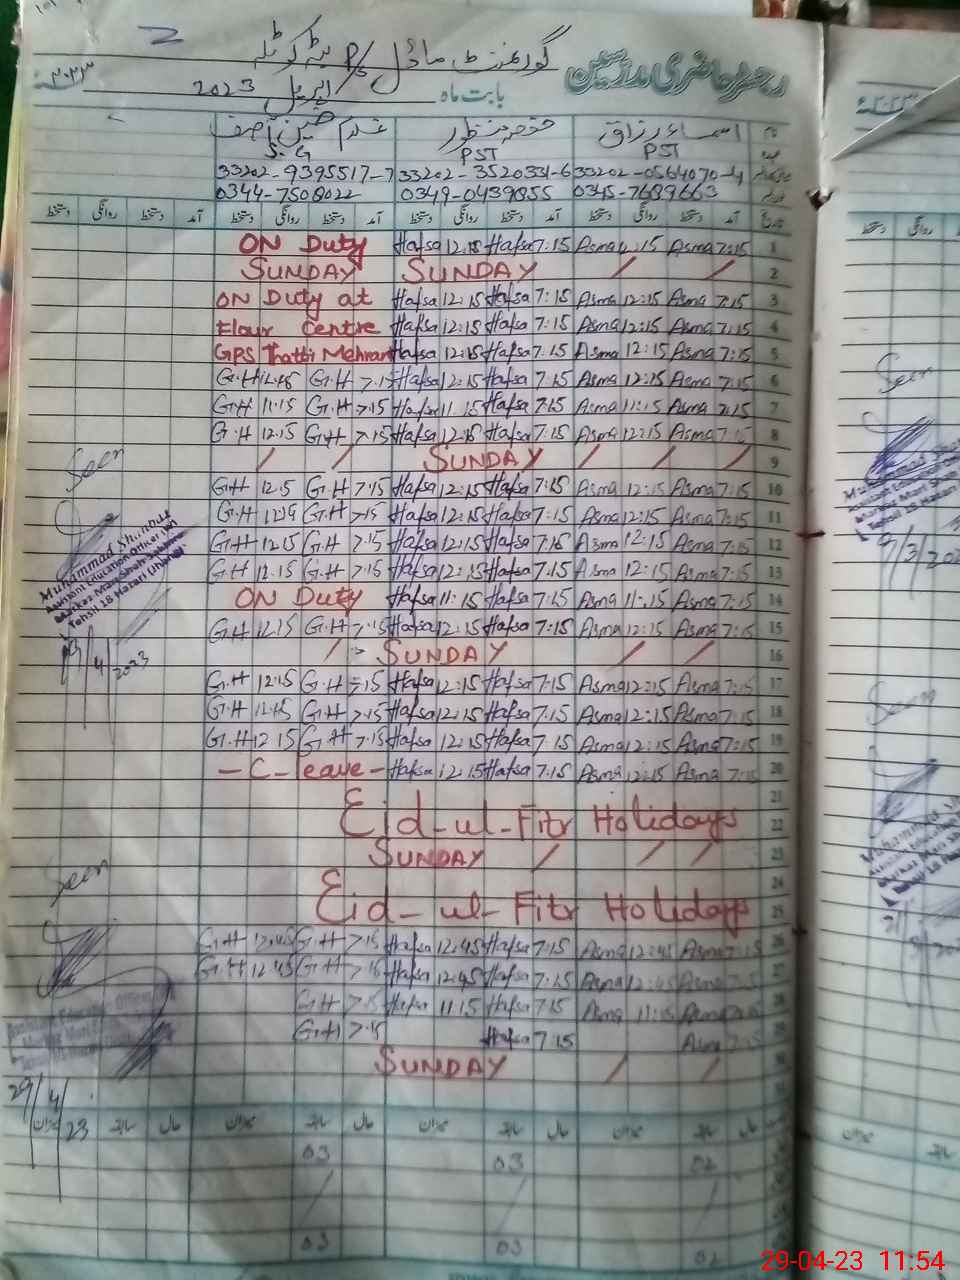 رجسٹر حاضری مدرسین
گورنمنٹ ماڈل P/S
بابت ماہ اپریل 2023
اسماء رزاق حفصہ منظور غلام حسین آصف
PST PST S.G
33202-0564070-4 33202-3520331-6 33202-9395517-7
0345-7689663 0349-0439855 0344-7508022
تاریخ آمد دستخط روانگی دستخط آمد دستخط روانگی دستخط آمد دستخط روانگی دستخط
ON Duty Hafsa 12:15 Hafsa 7:15 Asma 12:15 Asma 7:15 1
SUNDAY SUNDAY / / 2
ON Duty at Hafsa 12:15 Hafsa 7:15 Asma 12:15 Asma 7:15 3
Flour Centre Hafsa 12:15 Hafsa 7:15 Asma 12:15 Asma 7:15 4
GPS Thatti Mehran Hafsa 12:15 Hafsa 7:15 Asma 12:15 Asma 7:15 5
G.H 12.15 G.H 7.15 Hafsa 12:15 Hafsa 7:15 Asma 12:15 Asma 7:15 6
G.H 11.15 G.H 7.15 Hafsa 11:15 Hafsa 7:15 Asma 11:15 Asma 7:15 7
G.H 12.15 G.H 7.15 Hafsa 12:15 Hafsa 7:15 Asma 12:15 Asma 7:15 8
/ / SUNDAY / / / 9
G.H 12.5 G.H 7.15 Hafsa 12:15 Hafsa 7:15 Asma 12:15 Asma 7:15 10
G.H G.H 7.15 Hafsa 12:15 Hafsa 7:15 Asma 12:15 Asma 7:15 11
G.H 12.15 G.H 7.15 Hafsa 12:15 Hafsa 7:15 Asma 12:15 Asma 7:15 12
G.H 12.15 G.H 7.15 Hafsa 12:15 Hafsa 7:15 Asma 12:15 Asma 7:15 13
ON Duty Hafsa 11:15 Hafsa 7:15 Asma 11:15 Asma 7:15 14
G.H 12.15 G.H 7.15 Hafsa 12:15 Hafsa 7:15 Asma 12:15 Asma 7:15 15
/ SUNDAY / / 16
G.H 12.15 G.H 7.15 Hafsa 12:15 Hafsa 7:15 Asma 12:15 Asma 7:15 17
G.H 12.15 G.H 7.15 Hafsa 12:15 Hafsa 7:15 Asma 12:15 Asma 7:15 18
G.H 12.15 G.H 7.15 Hafsa 12:15 Hafsa 7:15 Asma 12:15 Asma 7:15 19
- C - leave - Hafsa 12:15 Hafsa 7:15 Asma 12:15 Asma 7:15 20
21
Eid-ul-Fitr Holidays 22
SUNDAY / / / 23
24
Eid-ul-Fitr Holidays 25
G.H 12.45 G.H 7.15 Hafsa 12.45 Hafsa 7:15 Asma 12:45 Asma 7:15 26
G.H 12.45 G.H 7.15 Hafsa 12.45 Hafsa 7:15 Asma 12:45 Asma 7:15 27
G.H 7.15 Hafsa 11.15 Hafsa 7:15 Asma 11:15 Asma 7:15 28
G.H 7.15 Hafsa 7:15 Asma 7:15 29
SUNDAY / / 30
31
حال سابقہ میزان حال سابقہ میزان حال سابقہ میزان
03 03 02
/ / /
03 03 02
Seen
Muhammad Shahbaz
Assistant Education Officer
Tehsil 18 Hazari
/4/2023
Seen
Assistant Education Officer
29/4/23
Seen
9/3/202
Seen
29-04-23 11:54